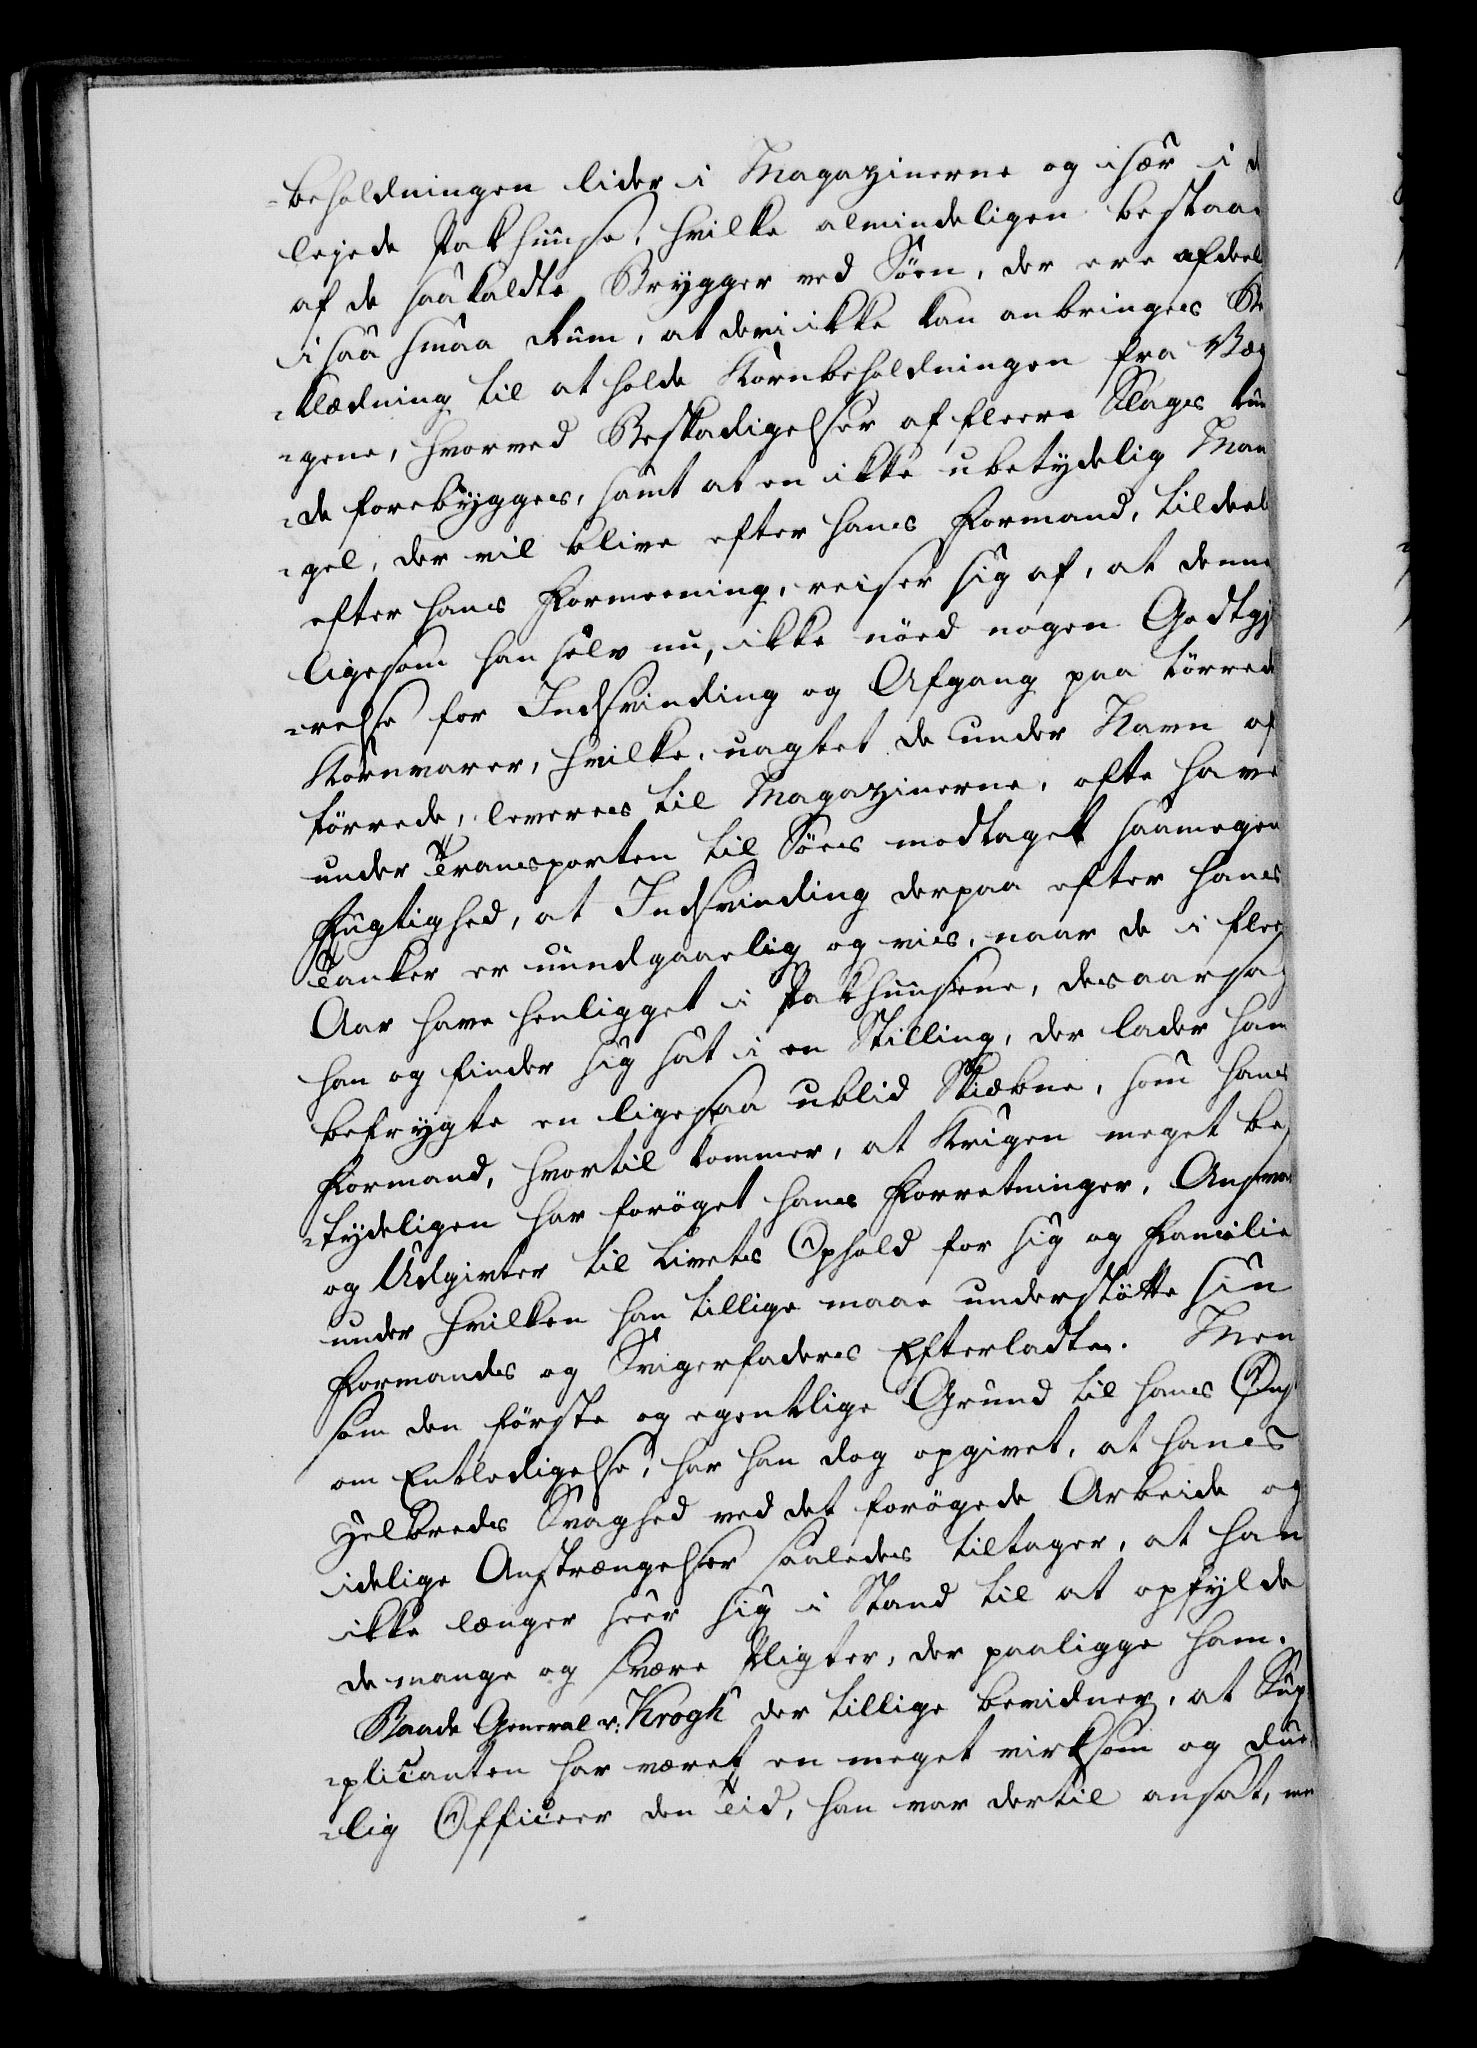 =beholdningen lider i Magazinerne og især i d
lejede Pakhuuse, hvilke almindeligen bestaae
af de saakaldte Brygger ved Söen, der ere afdeel
i saa smaa Rum, at deri ikke kan anbringes Be
=klædning til at holde Kornbeholdningen fra Væg
=gene, hvorved Beskadigelser af fleere Slags kun
=de forebygges, samt at en ikke ubetydelig Man
=gel, der vil blive efter hans Formand, tildeels
efter hans Formeening, reiser sig af, at denne
ligesom han selv nu, ikke nöed nogen Godtgjö
=relse for Indsvinding og Afgang paa törrede
Kornvarer, hvilke, uagtet de under Navn af
törrede, leveres til Magazinerne, ofte have
under Transporten til Söes modtaget saamegen
Fugtighed, at Indsvinding derpaa efter hans
Tanker er uundgaaelig og vis, naar de i fleer
Aar have henligget i Pakhuusene, desaarsag
han og finder sig sat i en Stilling, der lader ham
befrygte en ligesaa ublid Skiæbne, som hans
Formand, hvortil kommer, at Krigen meget be
=tydeligen har foröget hans Forretninger, Ansvar
og Udgivter til Livets Ophold for sig og Familie
under hvilken han tillige maae understötte sin
Formands og Svigerfaders Efterladte. Men
som den förste og egentlige Grund til hans Öns
om Entledigelse, har han dog opgivet, at hans
Helbreds Svaghed ved det forögede Arbeide og
idelige Anstrængelser saaledes tiltager, at han
ikke længer seer sig i Stand til at opfylde
de mange og svære Pligter, der paaligge ham.
Baade General v: Krogh der tillige bevidner, at Sup
=plicanten har været en meget virksom og due
=lig Officeer den Tid, han var dertil ansat, me